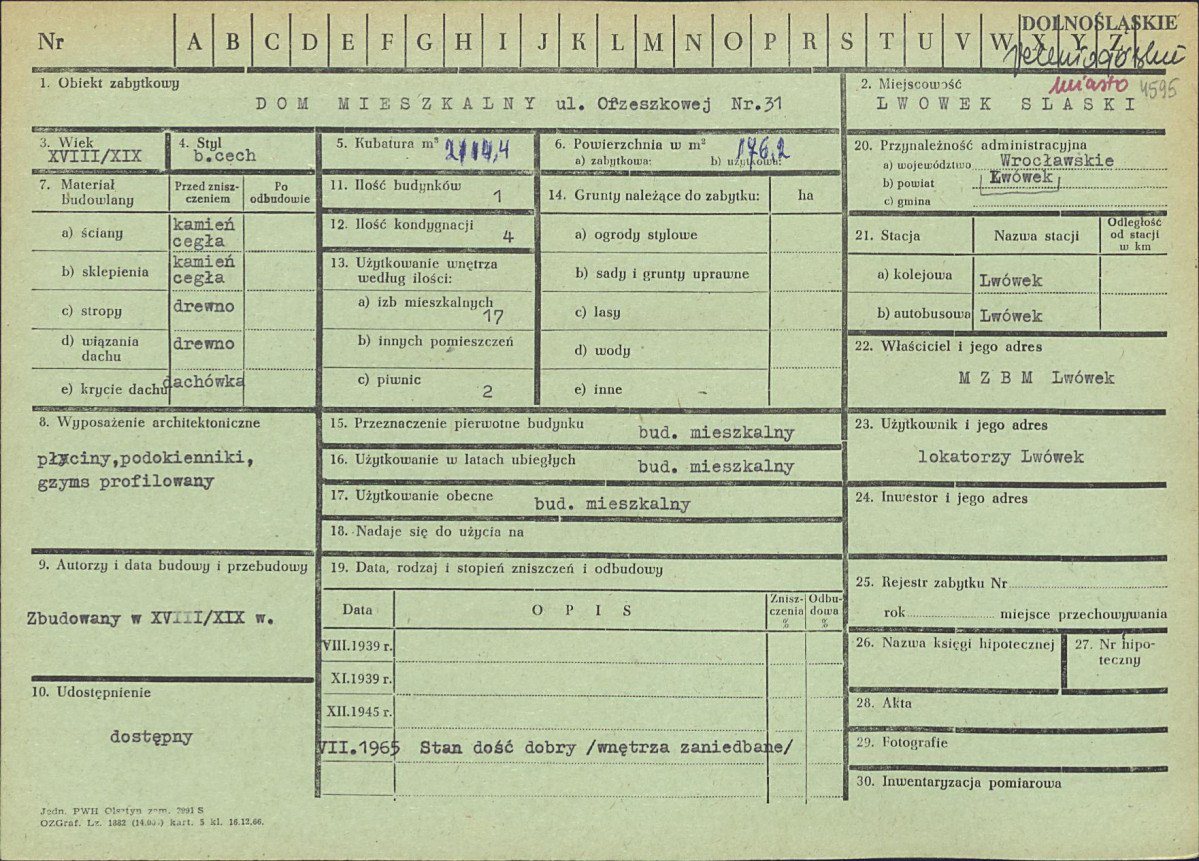 DOLNOŚLĄSKIE
Nr A B C D E F G H I J K L M N O P R S T U V W X Y Z
miasto 4595
1. Obiekt zabytkowy
DOM MIESZKALNY ul. Orzeszkowej Nr.31
2. Miejscowość
LWOWEK SLASKI
3. Wiek
XVIII/XIX
4. Styl
b.cech
5. Kubatura m³ 2114,4
6. Powierzchnia w m² 176,2
a) zabytkowa: b) użytkowa:
7. Materiał Budowlany
Przed zniszczeniem
Po odbudowie
a) ściany
kamień
cegła
b) sklepienia
kamień
cegła
c) stropy
drewno
d) wiązania dachu
drewno
e) krycie dachu
dachówka
8. Wyposażenie architektoniczne
płyciny,podokienniki,
gzyms profilowany
9. Autorzy i data budowy i przebudowy
Zbudowany w XVIII/XIX w.
10. Udostępnienie
dostępny
11. Ilość budynków
1
12. Ilość kondygnacji
4
13. Użytkowanie wnętrza
według ilości:
a) izb mieszkalnych
17
b) innych pomieszczeń
c) piwnic
2
14. Grunty należące do zabytku: ha
a) ogrody stylowe
b) sady i grunty uprawne
c) lasy
d) wody
e) inne -
15. Przeznaczenie pierwotne budynku
bud. mieszkalny
16. Użytkowanie w latach ubiegłych
bud. mieszkalny
17. Użytkowanie obecne
bud. mieszkalny
18. Nadaje się do użycia na
19. Data, rodzaj i stopień zniszczeń i odbudowy
Data
OPIS
Zniszczenia %
Odbudowa %
VIII.1939 r.
XI.1939 r.
XII.1945 r.
VII.1965 Stan dość dobry /wnętrza zaniedbane/
20. Przynależność administracyjna
a) województwo Wrocławskie
b) powiat Lwówek
c) gmina
21. Stacja
Nazwa stacji
Odległość od stacji w km
a) kolejowa Lwówek
b) autobusowa Lwówek
22. Właściciel i jego adres
M Z B M Lwówek
23. Użytkownik i jego adres
lokatorzy Lwówek
24. Inwestor i jego adres
25. Rejestr zabytku Nr
rok miejsce przechowywania
26. Nazwa księgi hipotecznej
27. Nr hipoteczny
28. Akta
29. Fotografie
30. Inwentaryzacja pomiarowa
Jedn. PWH Olsztyn zam. 7991 S
OZGraf. Lz. 1882 kart. 5 kl. 16.12.66.